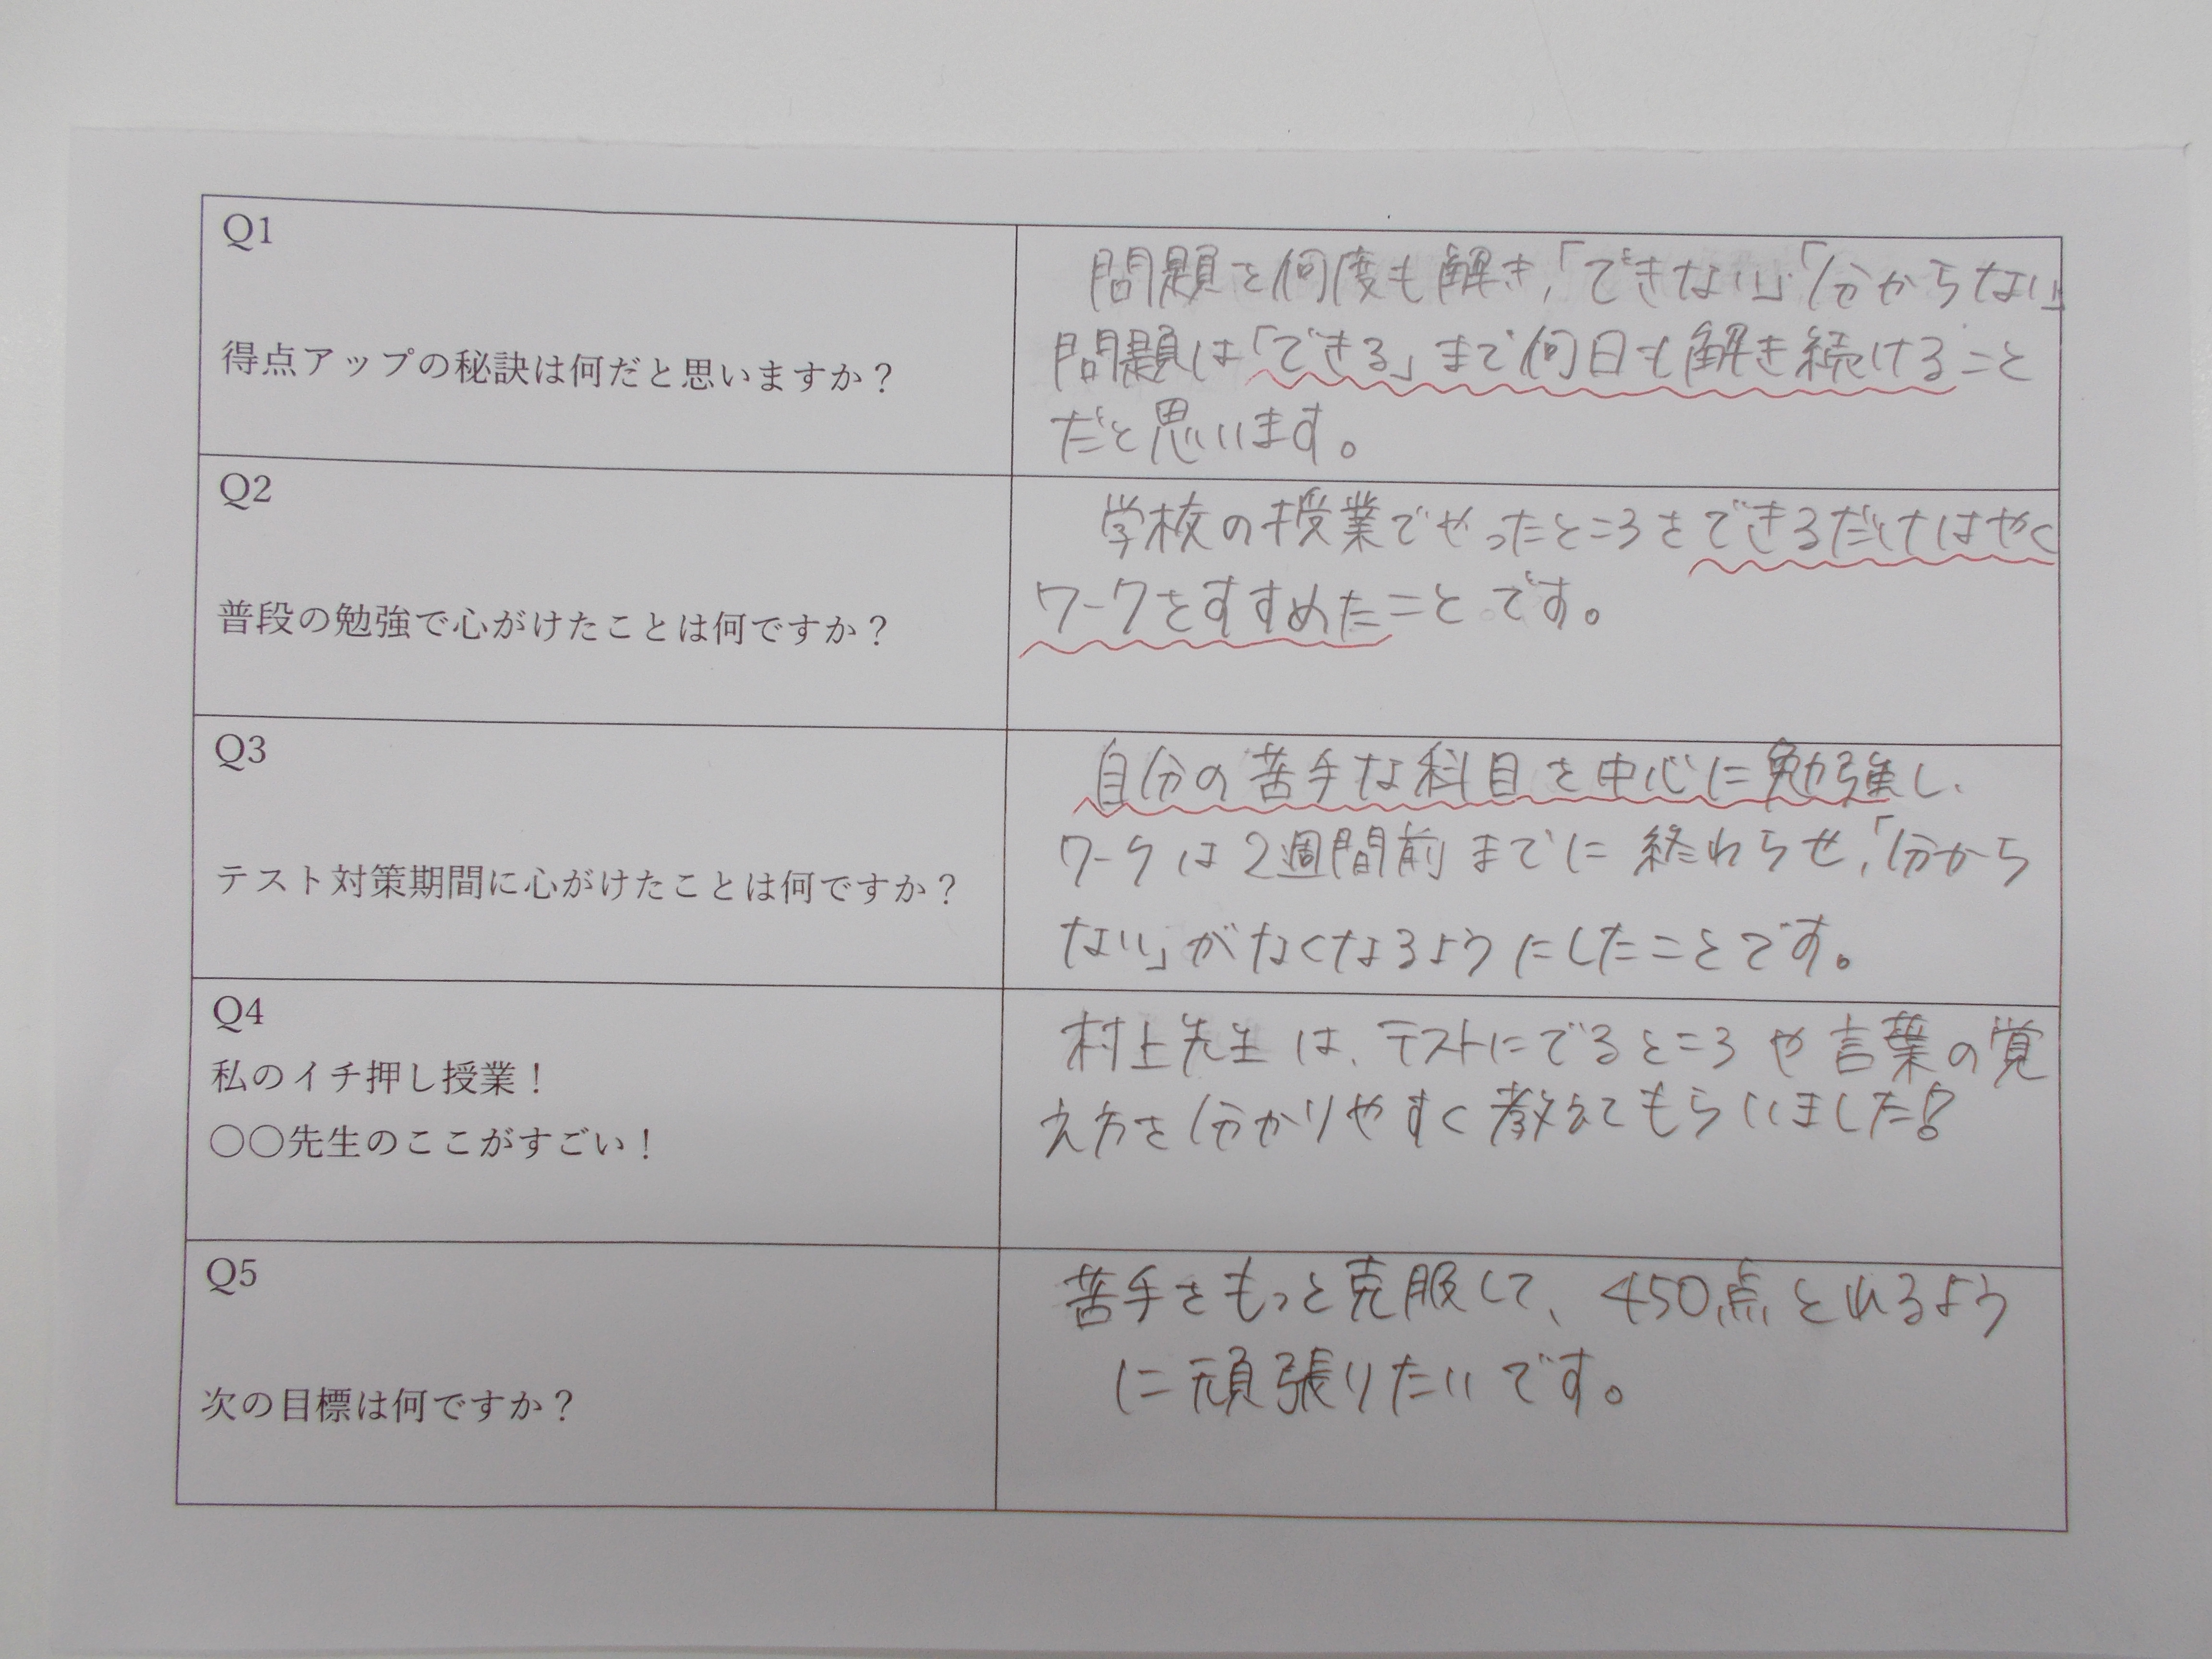 Q1
得点アップの秘訣は何だと思いますか？
問題を何度も解き,「できない」「分からない」
問題は「できる」まで何日も解き続けること
だと思います。
Q2
普段の勉強で心がけたことは何ですか？
学校の授業でやったところをできるだけはやく
ワークをすすめたことです。
Q3
テスト対策期間に心がけたことは何ですか？
自分の苦手な科目を中心に勉強し、
ワークは2週間前までに終わらせ,「分から
ない」がなくなるようにしたことです。
Q4
私のイチ押し授業！
〇〇先生のここがすごい！
村上先生は、テストにでるところや言葉の覚
え方を分かりやすく教えてもらいました!
Q5
次の目標は何ですか？
苦手をもっと克服して、450点とれるよう
に頑張りたいです。